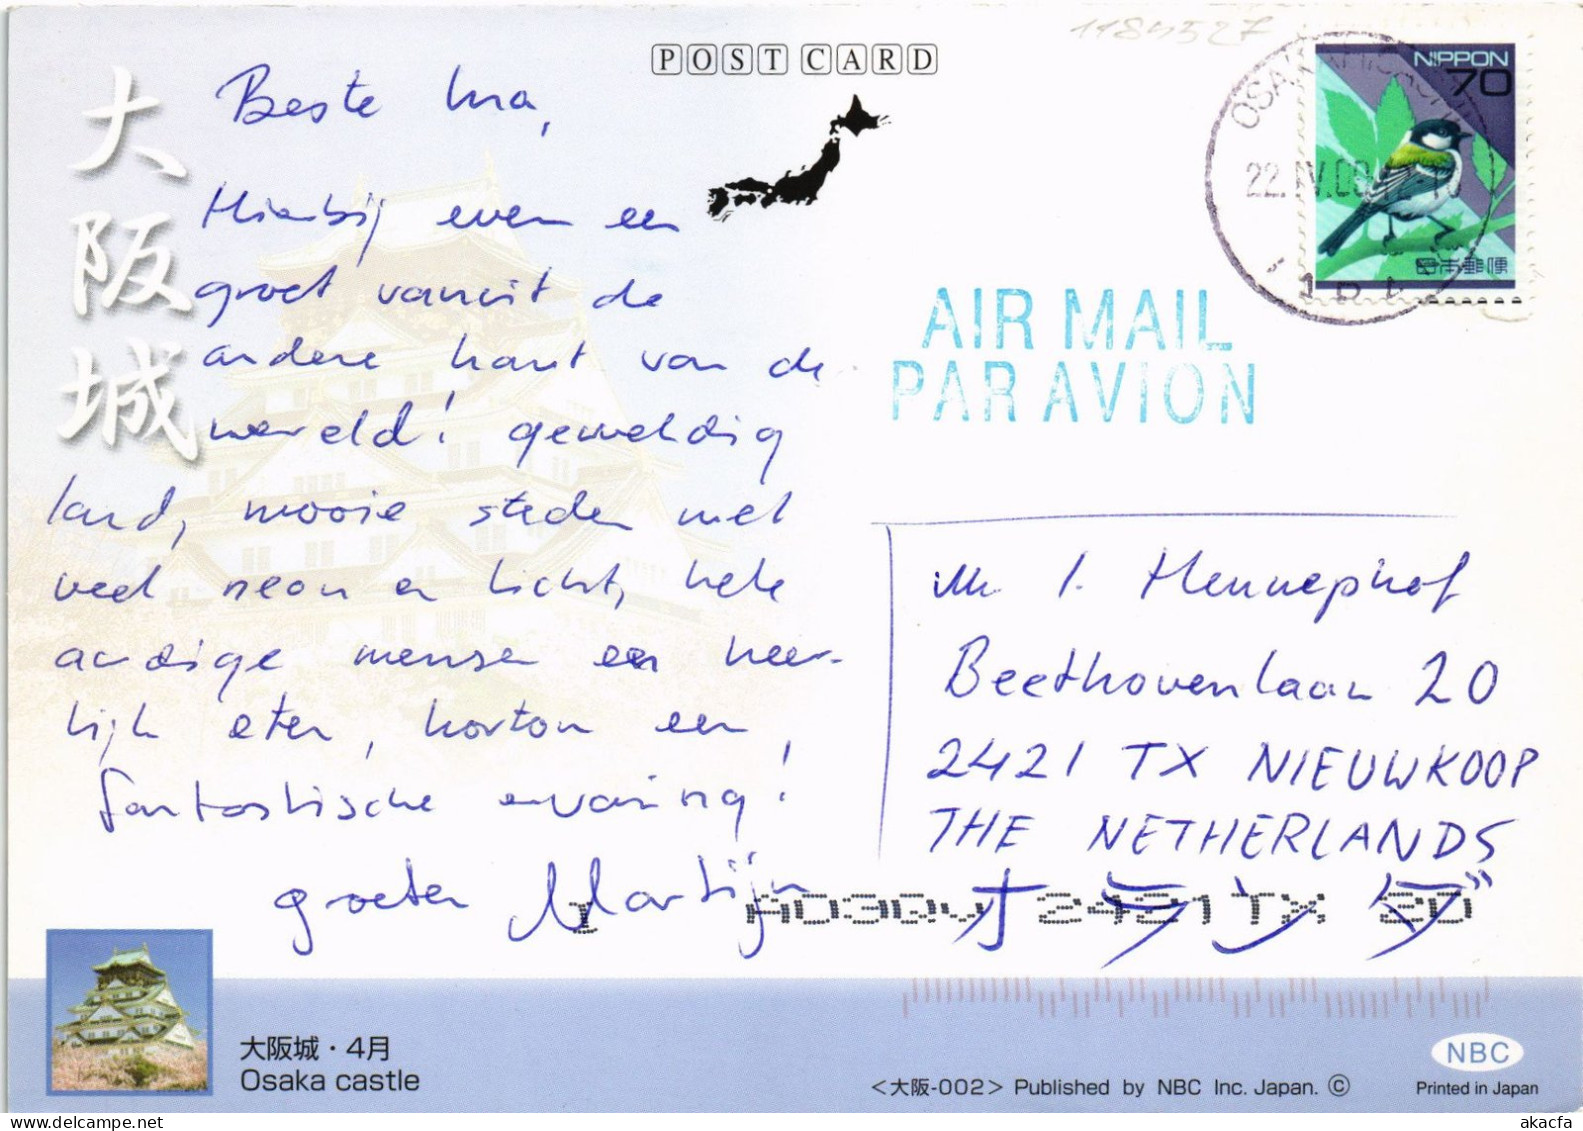 1184527
POST CARD
大阪城
NIPPON
70
日本郵便
22.IV.08
Beste Ina,
Hierbij even een
groet vanuit de
andere kant van de
wereld! geweldig
land, mooie steden met
veel neon en licht, hele
aardige mensen en heer-
lijk eten, kortom een
fantastische ervaring!
groeten Martijn
AIR MAIL
PAR AVION
I. Hennephof
Beethovenlaan 20
2421 TX NIEUWKOOP
THE NETHERLANDS
オランダ
2421TX 20
大阪城・4月
Osaka castle
<大阪-002> Published by NBC Inc. Japan. ©
NBC
Printed in Japan
akacfa